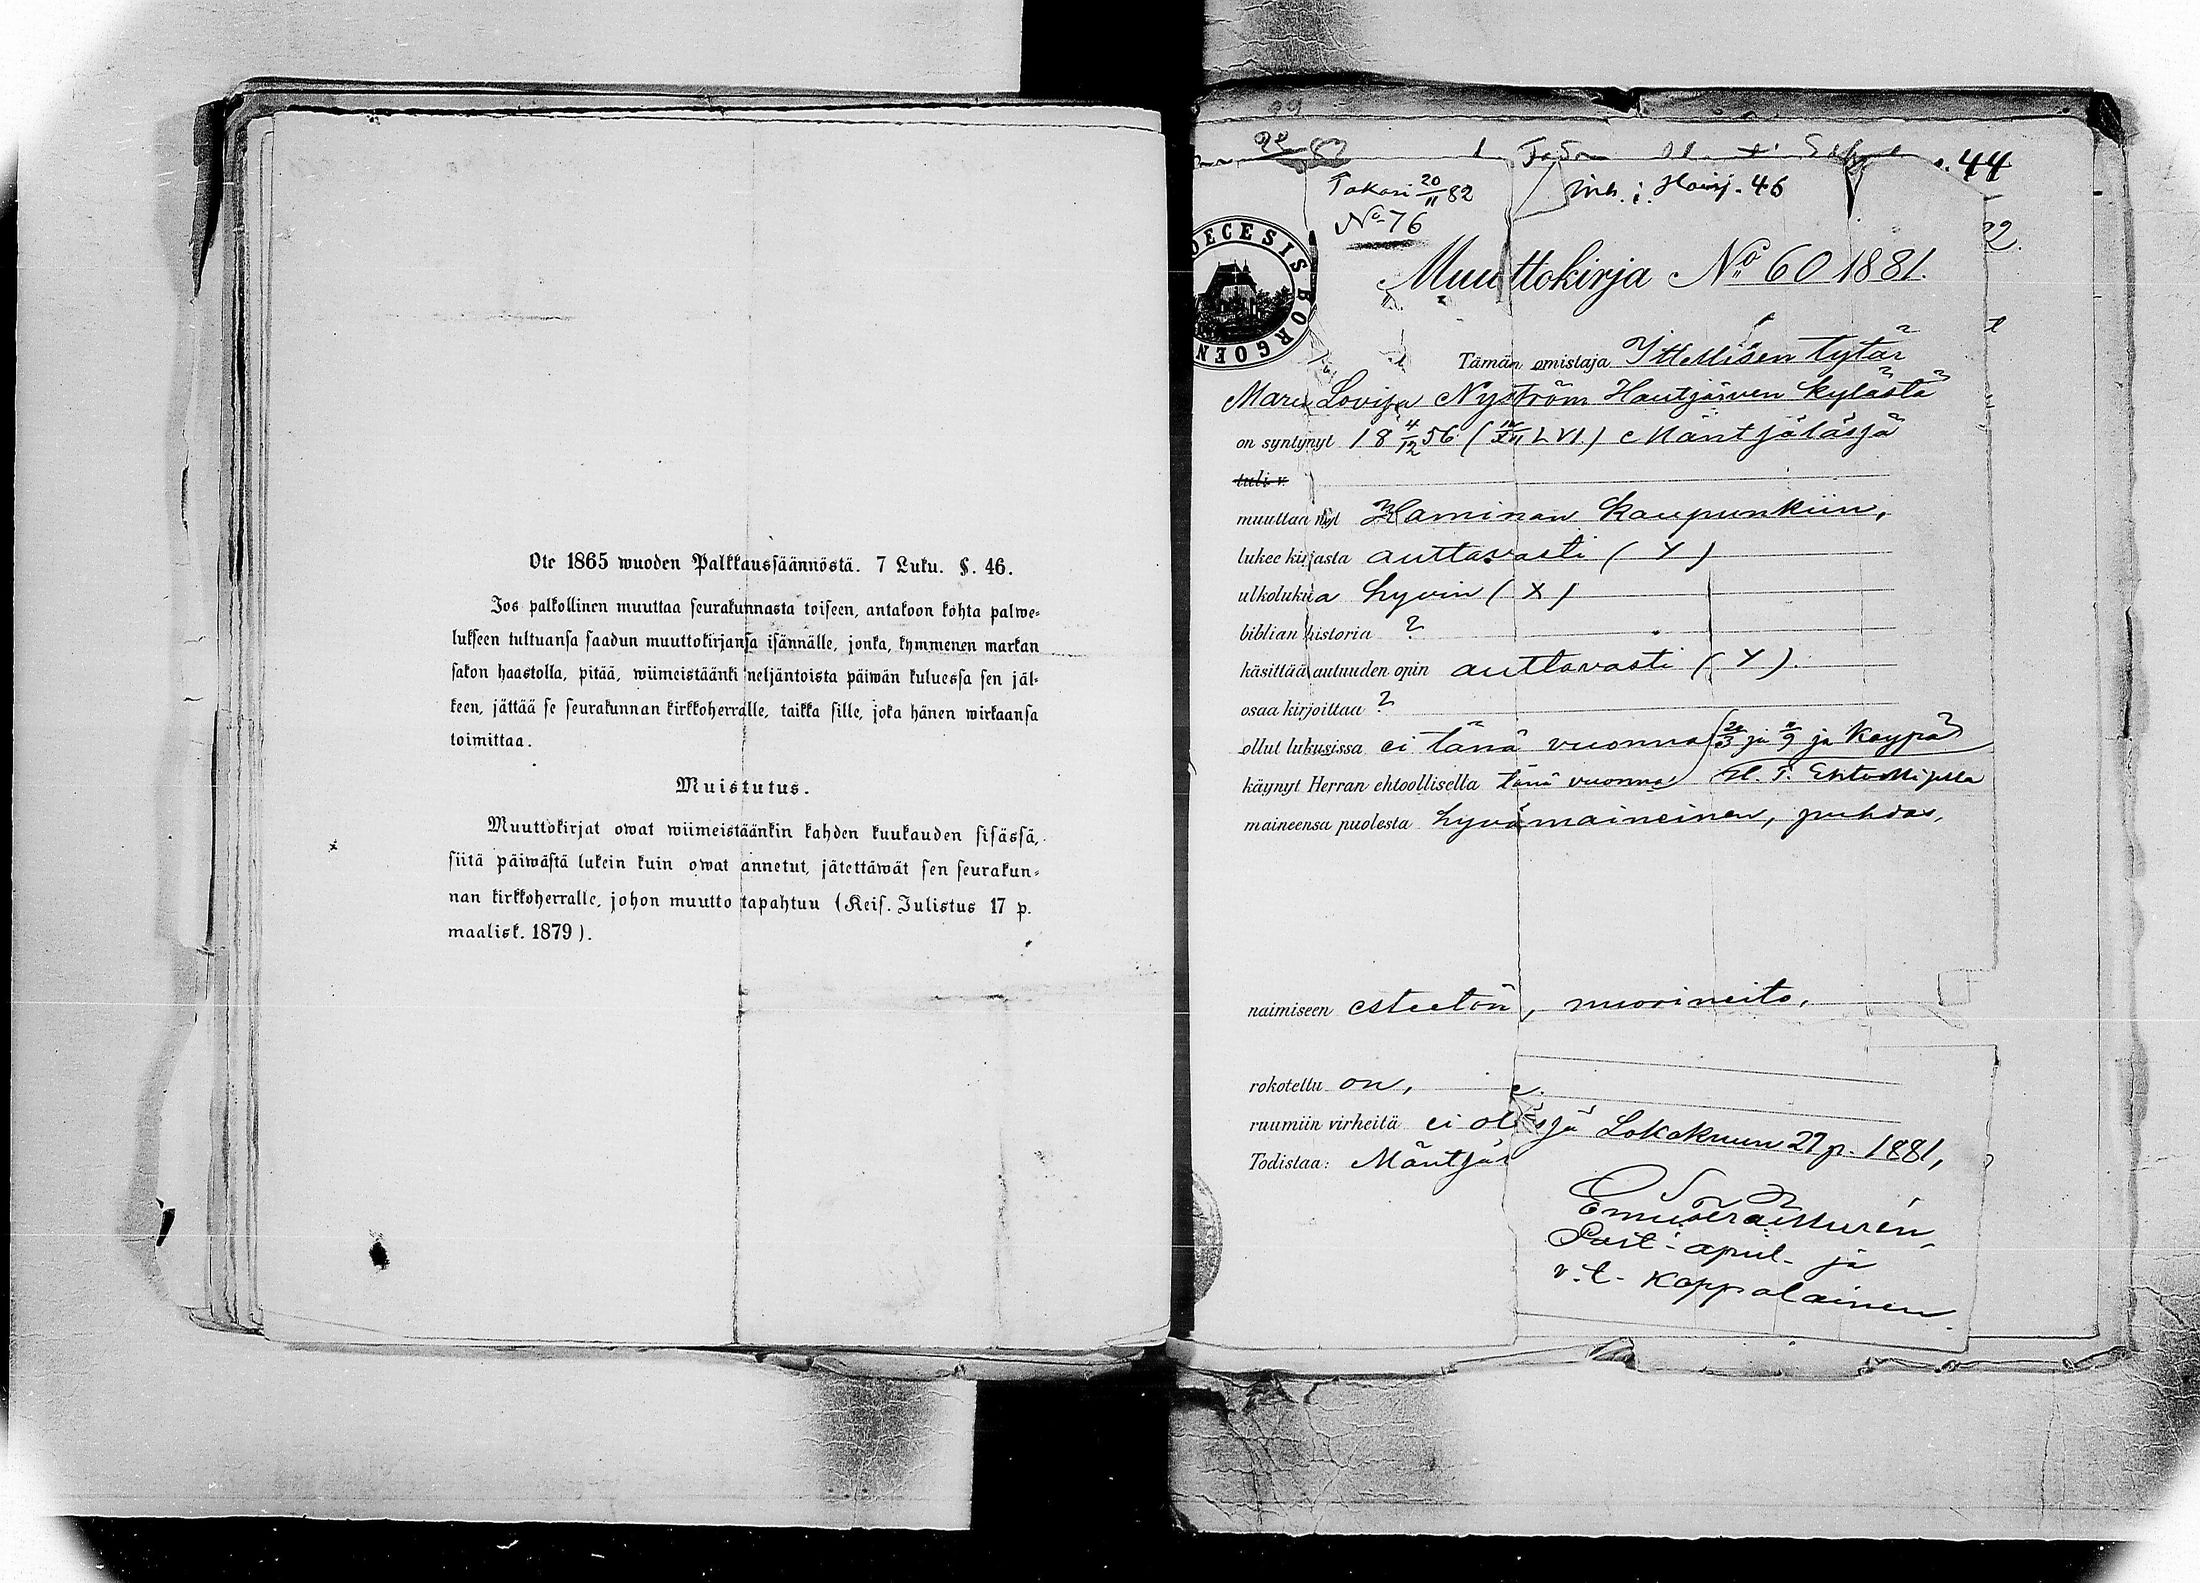 Ote 1865 wuoden Palkkaussäännöstä. 7 Luku. §. 46.
Jos palkollinen muuttaa seurakunnasta toiseen, antakoon kohta palwe-
lukseen tultuansa saadun muuttokirjansa isännälle, jonka, kymmenen markan
sakon haastolla, pitää, wiimeistäänki neljäntoista päiwän kuluessa sen jäl-
keen, jättää se seurakunnan kirkkoherralle, taikka sille, joka hänen wirkaansa
toimittaa.
Muistutus.
Muuttokirjat owat wiimeistäänkin kahden kuukauden sisässä,
siitä päiwästä lukein kuin owat annetut, jätettäwät sen seurakun-
nan kirkkoherralle, johon muutto tapahtuu (Keis. Julistus 17 p.
maalisk. 1879).
44
Takasi 20/11 82
No 76
46
DECESIS BORGOEN
Muuttokirja No 60 1881.
Tämän omistaja Ittellisen tytär
Maria Lovisa Nyström Hautjärven kylästä
on syntynyt 18 4/12 56 (IV/XII LVI) Mäntjälässä
tuli v.
muuttaa nyt Haminan kaupunkiin,
lukee kirjasta auttavasti (Y)
ulkolukua hyvin (X)
biblian historia ?
käsittää autuuden opin auttavasti (Y).
osaa kirjoittaa ?
ollut lukusissa ei tänä vuonna (20/3 ja 11/9 ja käypä
käynyt Herran ehtoollisella tänä vuonna H. P. Ehtoollisella
maineensa puolesta hyvämaineinen, puhdas,
naimiseen esteetön, nuorineito,
rokotettu on,
ruumiin virheitä ei ol
Todistaa: Mäntjäl
ässä Lokakuun 27 p. 1881,
Past. apul. ja
v.t. kappalainen.